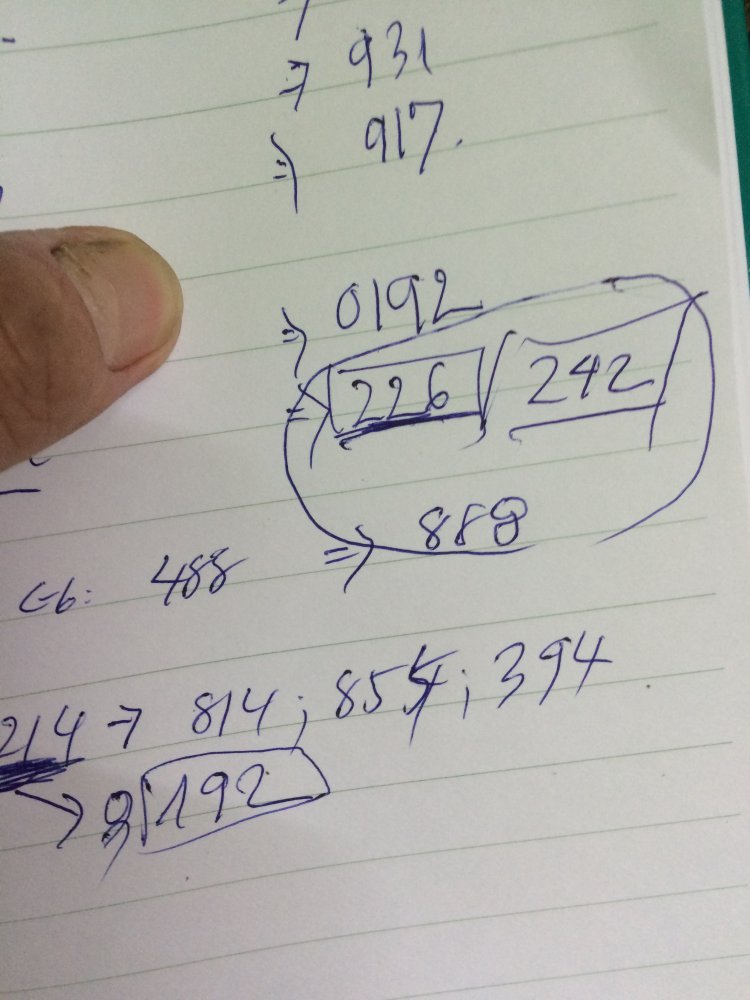 => 931
=> 917.
=> 0192
=> 226 242
=> 888
G6: 488
214 → 814; 854; 394
→ 192